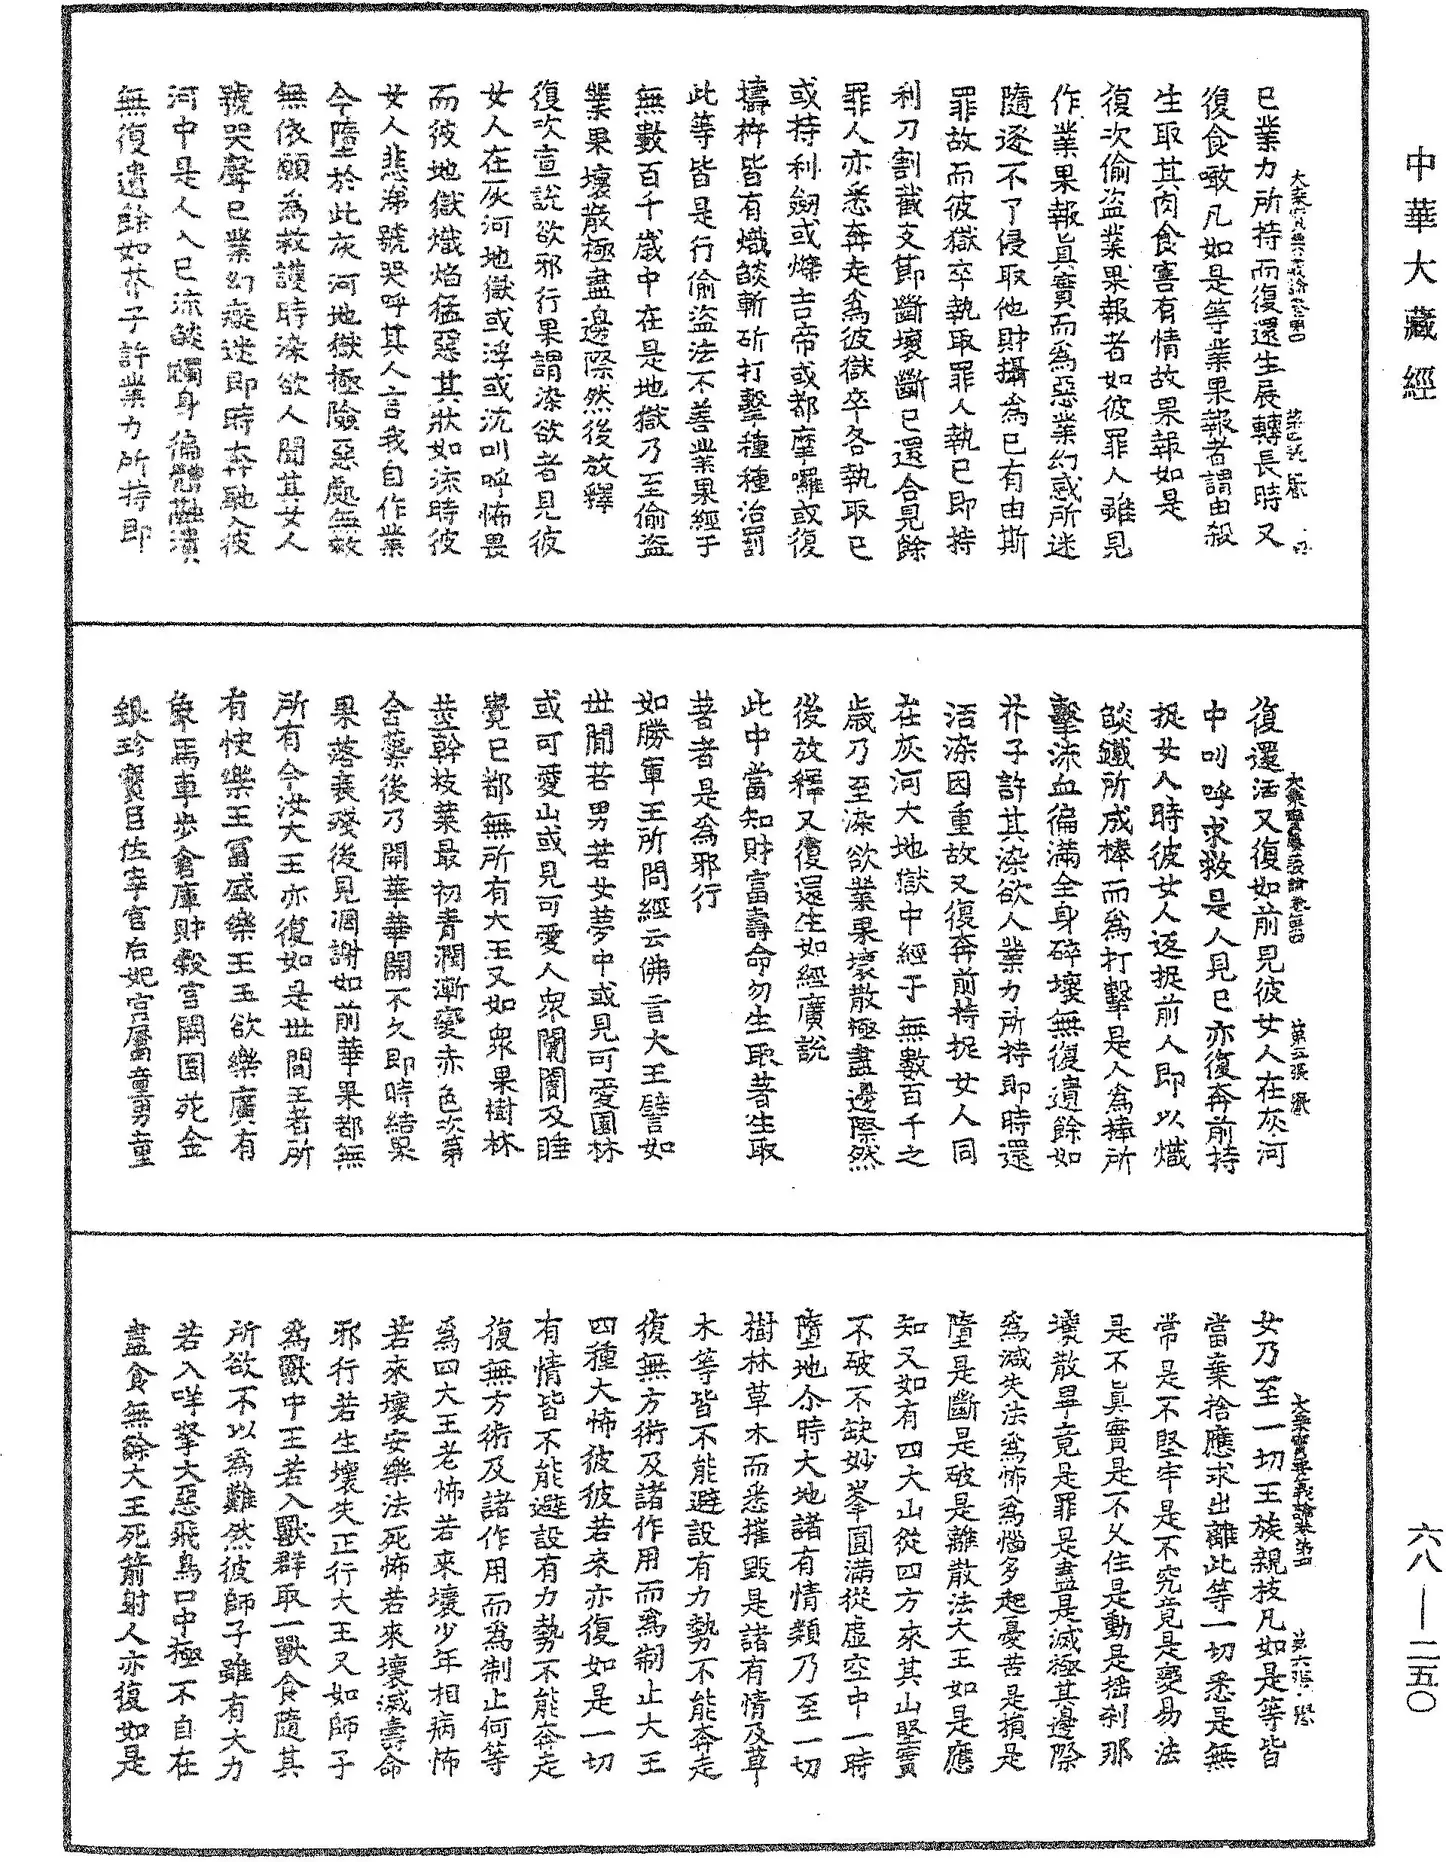 中華大藏經
大乘寶要義論卷第四
已業力所持而復還生展轉長時又
復食噉凡如是等業果報者謂由殺
生取其肉食害有情故果報如是
復次偷盜業果報者如彼罪人雖見
作業果報真實而為惡業幻惑所迷
隨逐不了侵取他財攝為已有由斯
罪故而彼獄卒執取罪人執已即持
利刀割截支節斷壞斷已還合見餘
罪人亦悉奔走為彼獄卒各執取已
或持利劒或爍吉帝或都摩囉或復
擣杵皆有熾燄斬斫打擊種種治罰
此等皆是行偷盜法不善業果經于
無數百千歲中在是地獄乃至偷盜
業果壞散極盡邊際然後放釋
復次宣說欲邪行果謂染欲者見彼
女人在灰河地獄或浮或沈叫呼怖畏
而彼地獄熾焰猛惡其狀如流時彼
女人悲涕號哭呼其人言我自作業
今墮於此灰河地獄極險惡處無救
無依願為救護時染欲人聞其女人
號哭聲已業幻癡迷即時奔馳入彼
河中是人入已流燄觸身徧體融潰
無復遺餘如芥子許業力所持即
大乘寶要義論卷第四 第五張
復還活又復如前見彼女人在灰河
中叫呼求救是人見已亦復奔前持
捉女人時彼女人返捉前人即以熾
燄鐵所成棒而為打擊是人為棒所
擊流血徧滿全身碎壞無復遺餘如
芥子許其染欲人業力所持即時還
活染因重故又復奔前持捉女人同
在灰河大地獄中經于無數百千之
歲乃至染欲業果壞散極盡邊際然
後放釋又復還生如經廣說
此中當知財富壽命勿生取著生取
著者是為邪行
如勝軍王所問經云佛言大王譬如
世間若男若女夢中或見可愛園林
或可愛山或見可愛人衆闠闠及睡
覺已都無所有大王又如衆果樹林
莖幹枝葉最初青潤漸變赤色次第
含蘂後乃開華華開不久即時結果
果落衰殘後見凋謝如前華果都無
所有今汝大王亦復如是世間王者所
有快樂王富盛樂王五欲樂廣有
象馬車步倉庫財穀宮闕園苑金
銀珍寶臣佐宰官后妃宮屬童男童
大乘寶要義論卷第四 第六張
女乃至一切王族親枝凡如是等皆
當棄捨應求出離此等一切悉是無
常是不堅牢是不究竟是變易法
是不真實是不久住是動是搖剎那
壞散畢竟是罪是盡是滅極其邊際
為減失法為怖為惱多起憂苦是損是
墮是斷是破是離散法大王如是應
知又如有四大山從四方來其山堅實
不破不缺妙峯圓滿從虛空中一時
墮地尒時大地諸有情類乃至一切
樹林草木而悉摧毀是諸有情及草
木等皆不能避設有力勢不能奔走
復無方術及諸作用而為制止大王
四種大怖彼彼若來亦復如是一切
有情皆不能避設有力勢不能奔走
復無方術及諸作用而為制止何等
為四大王老怖若來壞少年相病怖
若來壞安樂法死怖若來壞滅壽命
邪行若生壞失正行大王又如師子
為獸中王若入獸群取一獸食隨其
所欲不以為難然彼師子雖有大力
若入咩拏大惡飛鳥口中極不自在
盡食無餘大王死箭射人亦復如是
六八—二五〇